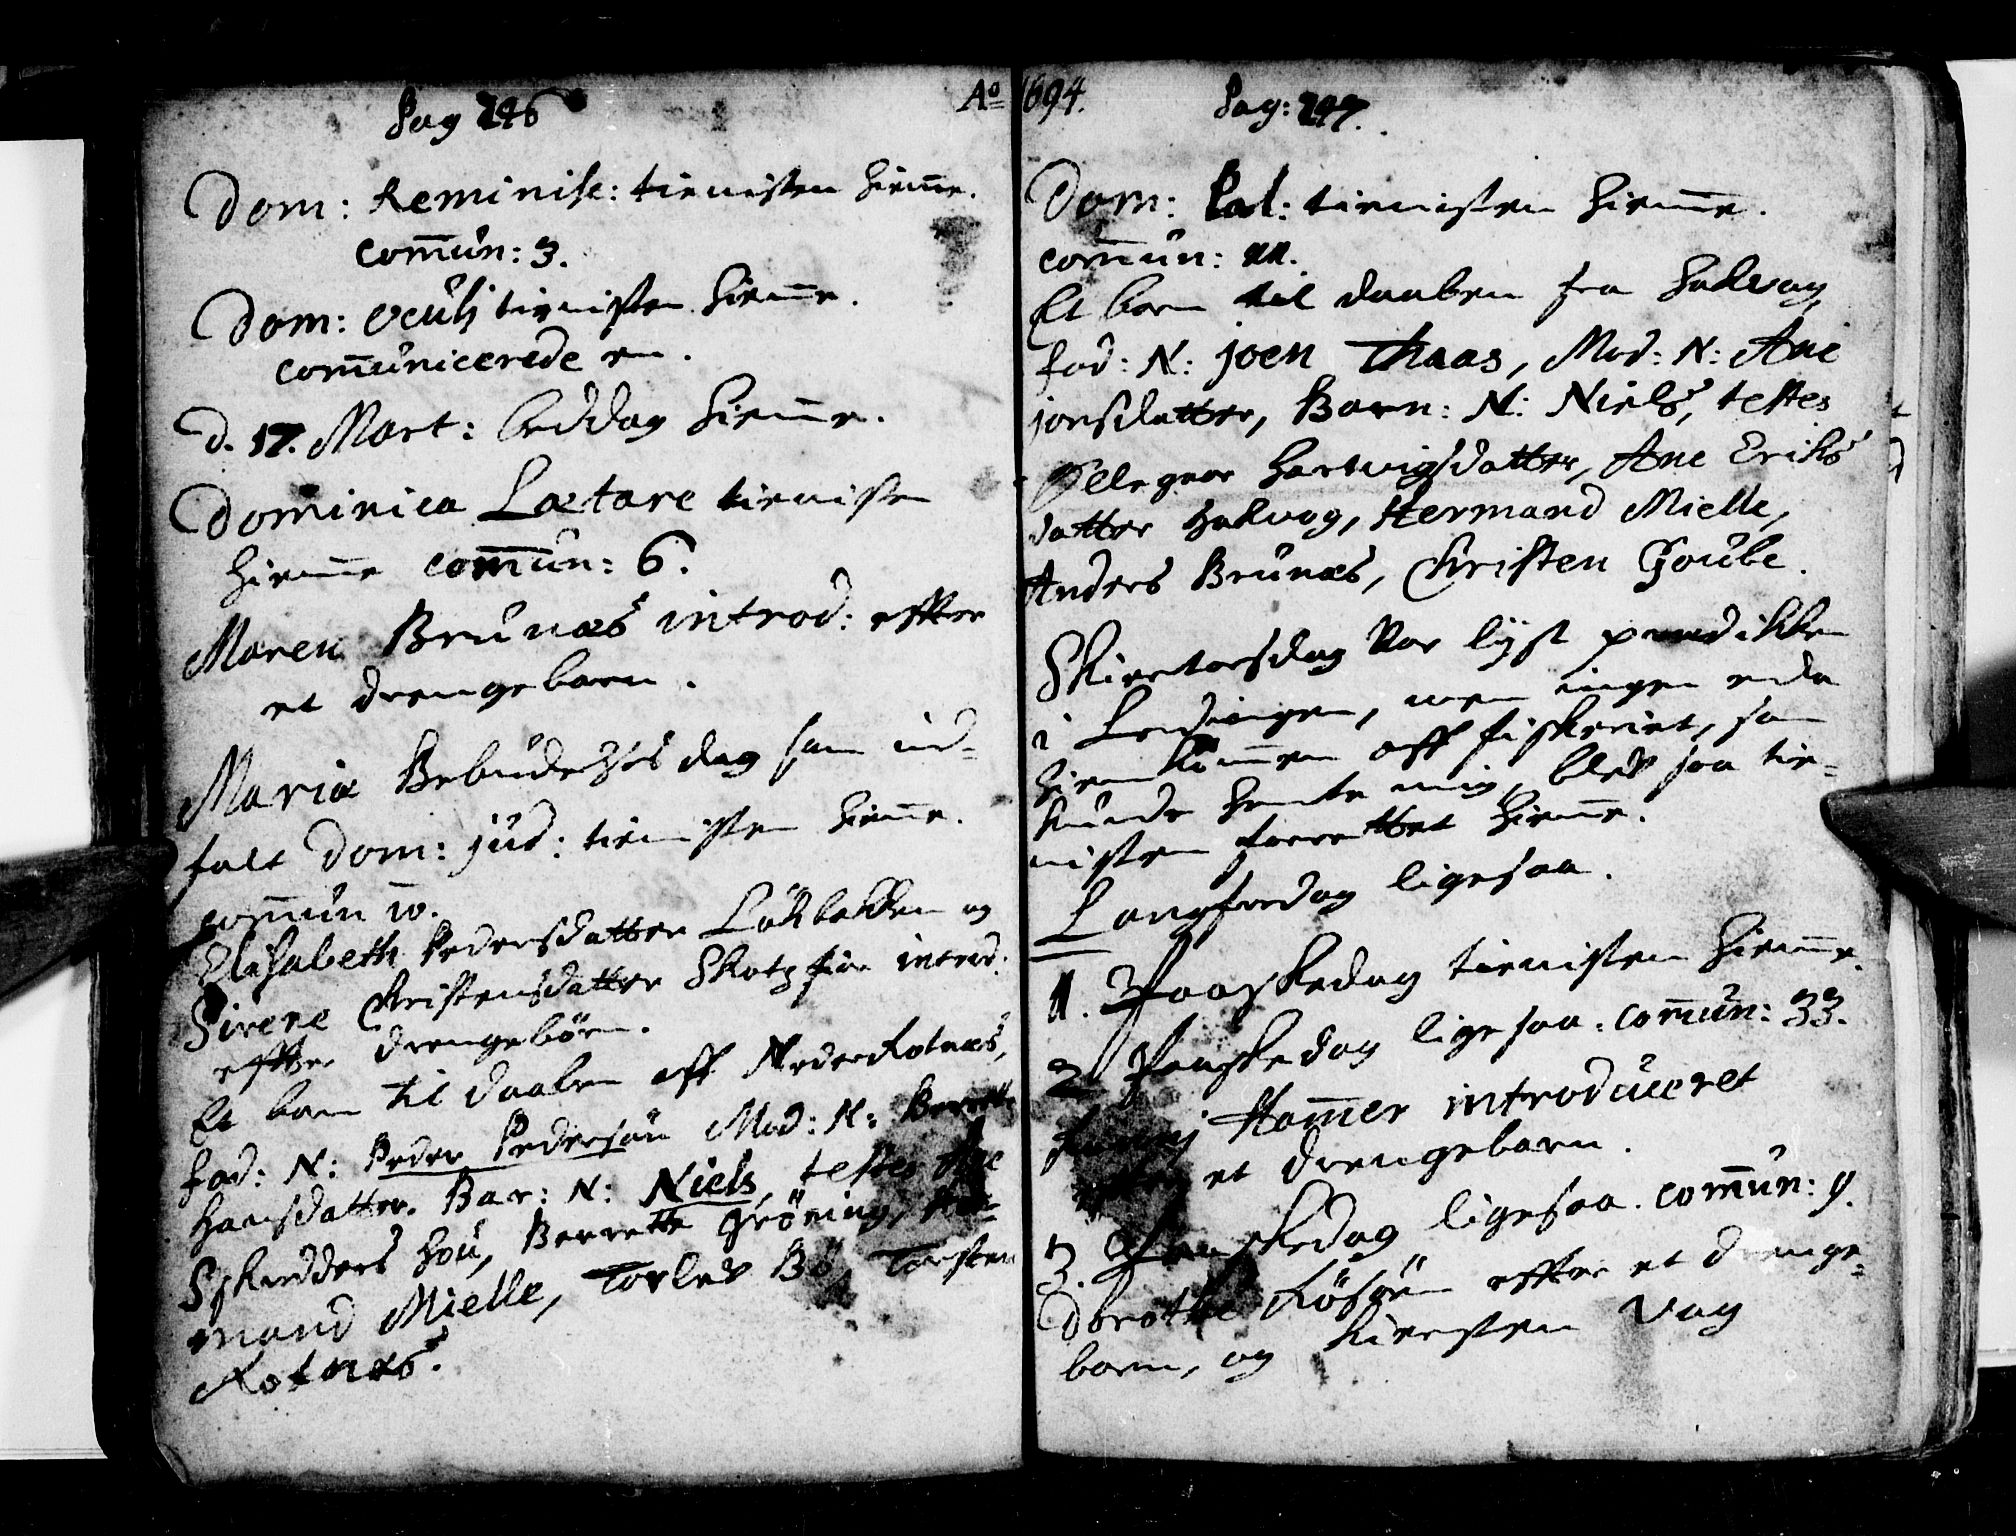 Pag 246
Dom: Reminisc: tienisten hiem̄e.
com̄un: 3.
Dom: oculj tienisten hiem̄e.
com̄unicerede en.
D. 17. Mart: beddag hiem̄e.
Dominica Lætare tienisten
hiem̄e com̄un: 6.
Maren Brunæs introd: effter
et drengebarn.
Mariæ Bebudelsis dag som ind-
falt Dom: jud: tienisten hiem̄e.
com̄un 10.
Elisabeth Pedersdatter og
Sirene Christensdatter introd:
effter drengebörn.
Et barn til daaben aff Neder Kotnæs,
fad: N: Peder Pedersøn Mod: N: Berette
Hansdatter. Bar: N: Niels, testes Ane
Hou, Berrette Gröning, Her-
mand Mielle, Torlev Bö, Torsten
Kotnæs.
Ao 1694.
Pag: 247.
Dom: Pal: tienisten hiem̄e.
com̄un: 11.
Et barn til daaben fra Halvag,
fad: N: joen Thaas, Mod: N: Ane
jonsdatter, Barn: N: Niels, testes
Ellegaar Hartvigsdatter, Ane Eriks
datter Halvog, Hermand Mielle,
Anders Brunæs, Christen Goube.
Skiertorsdag var lyst prædikken
i Lødingen, men ingen enda
hiemkom̄en aff fiskeriet, som
kunde hente mig, blev saa tie-
nisten forrettet hiem̄e.
Langfredag ligesaa.
1. Paaskedag tienisten hiem̄e.
2 Paaskedag ligesaa. com̄un: 33.
Ham̄er introduceret
effter et drengebarn.
3. Paaskedag ligesaa. com̄un: 9.
Dorothe Lösöen effter et drenge-
barn, og Kiersten Vag